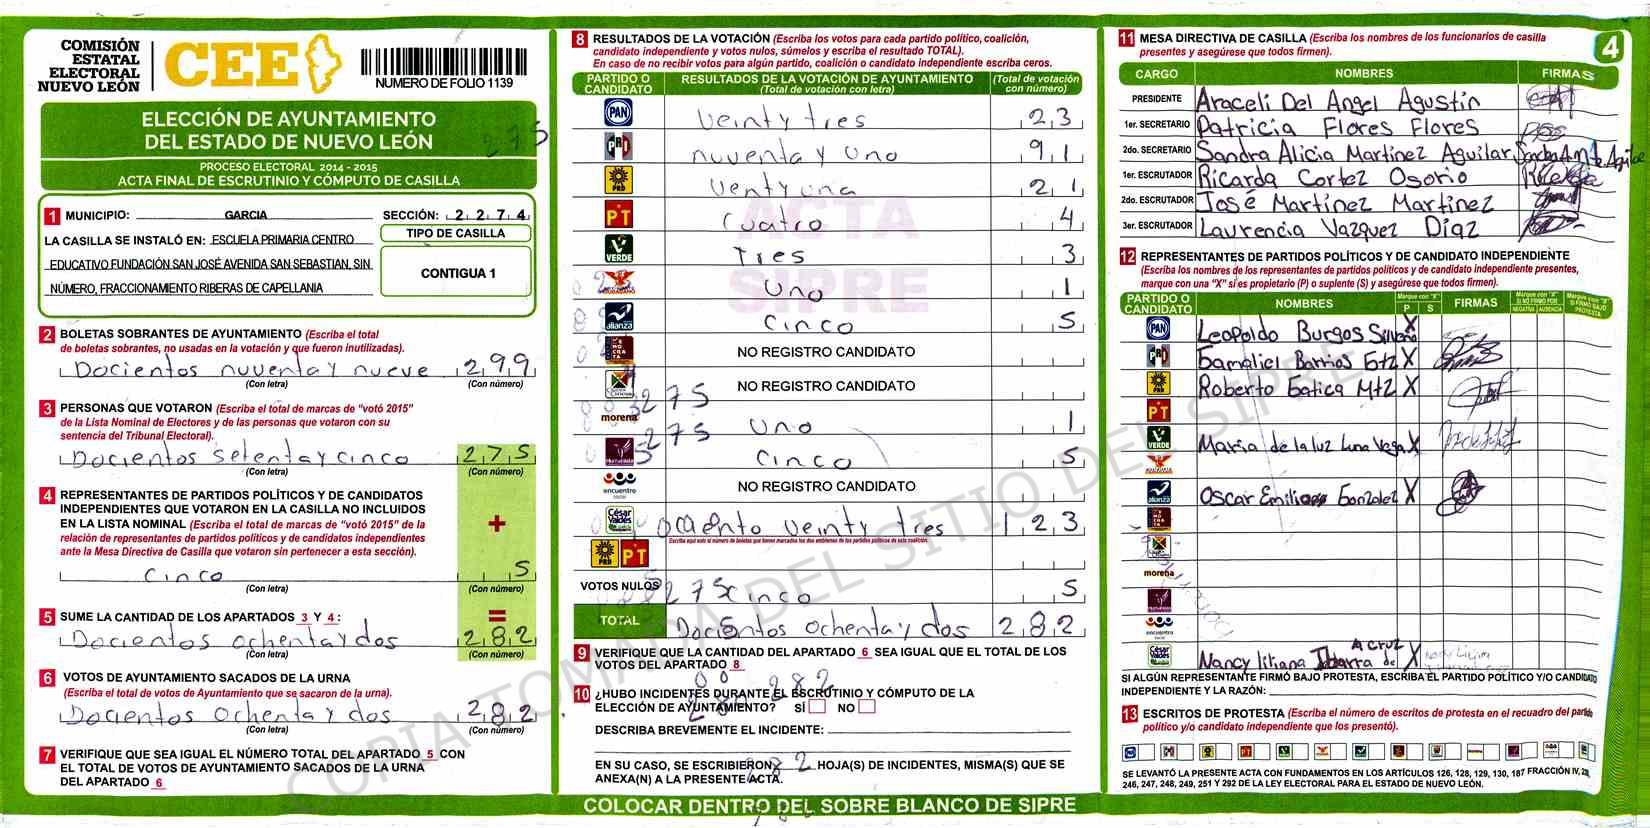 COMISIÓN
ESTATAL
ELECTORAL
NUEVO LEÓN
CEE
NÚMERO DE FOLIO 1139
ELECCIÓN DE AYUNTAMIENTO
DEL ESTADO DE NUEVO LEÓN
275
PROCESO ELECTORAL 2014 - 2015
ACTA FINAL DE ESCRUTINIO Y CÓMPUTO DE CASILLA
1 MUNICIPIO: GARCIA SECCIÓN: 2 2 7 4
LA CASILLA SE INSTALÓ EN: ESCUELA PRIMARIA CENTRO
EDUCATIVO FUNDACIÓN SAN JOSÉ AVENIDA SAN SEBASTIAN, SIN
NÚMERO, FRACCIONAMIENTO RIBERAS DE CAPELLANIA
TIPO DE CASILLA
CONTIGUA 1
2 BOLETAS SOBRANTES DE AYUNTAMIENTO (Escriba el total
de boletas sobrantes, no usadas en la votación y que fueron inutilizadas).
Docientos nuventa y nueve 2 9 9
(Con letra) (Con número)
3 PERSONAS QUE VOTARON (Escriba el total de marcas de “votó 2015”
de la Lista Nominal de Electores y de las personas que votaron con su
sentencia del Tribunal Electoral).
Docientos Setenta y cinco 2 7 5
(Con letra) (Con número)
4 REPRESENTANTES DE PARTIDOS POLÍTICOS Y DE CANDIDATOS
INDEPENDIENTES QUE VOTARON EN LA CASILLA NO INCLUIDOS
EN LA LISTA NOMINAL (Escriba el total de marcas de “votó 2015” de la
relación de representantes de partidos políticos y de candidatos independientes
ante la Mesa Directiva de Casilla que votaron sin pertenecer a esta sección).
+
Cinco 5
(Con letra) (Con número)
=
5 SUME LA CANTIDAD DE LOS APARTADOS 3 Y 4 :
Docientos ochenta y dos 2 8 2
(Con letra) (Con número)
6 VOTOS DE AYUNTAMIENTO SACADOS DE LA URNA
(Escriba el total de votos de Ayuntamiento que se sacaron de la urna).
Docientos Ochenta y dos 2 8 2
(Con letra) (Con número)
7 VERIFIQUE QUE SEA IGUAL EL NÚMERO TOTAL DEL APARTADO 5 CON
EL TOTAL DE VOTOS DE AYUNTAMIENTO SACADOS DE LA URNA
DEL APARTADO 6
8 RESULTADOS DE LA VOTACIÓN (Escriba los votos para cada partido político, coalición,
candidato independiente y votos nulos, súmelos y escriba el resultado TOTAL).
En caso de no recibir votos para algún partido, coalición o candidato independiente escriba ceros.
PARTIDO O CANDIDATO RESULTADOS DE LA VOTACIÓN DE AYUNTAMIENTO (Total de votación con letra) (Total de votación con número)
PAN veinty tres 2 3
PRI nuventa y uno 9 1
PRD Venty una 2 1
PT Cuatro 4
VERDE Tres 3
Uno 1
alianza Cinco 5
NO REGISTRO CANDIDATO
NO REGISTRO CANDIDATO
275
morena Uno 1
275
Humanista Cinco 5
encuentro social NO REGISTRO CANDIDATO
César Valdés ociento veinty tres 1 2 3
Escriba aquí solo el número de boletas que tienen marcados los dos emblemas de los partidos políticos de esta coalición.
PRD PT
VOTOS NULOS 275 cinco 5
TOTAL Docientos ochenta y dos 2 8 2
ACTA
SIPRE
9 VERIFIQUE QUE LA CANTIDAD DEL APARTADO 6 SEA IGUAL QUE EL TOTAL DE LOS
VOTOS DEL APARTADO 8
10 ¿HUBO INCIDENTES DURANTE EL ESCRUTINIO Y CÓMPUTO DE LA
ELECCIÓN DE AYUNTAMIENTO? SÍ NO
282
DESCRIBA BREVEMENTE EL INCIDENTE:
EN SU CASO, SE ESCRIBIERON HOJA(S) DE INCIDENTES, MISMA(S) QUE SE
ANEXA(N) A LA PRESENTE ACTA.
COLOCAR DENTRO DEL SOBRE BLANCO DE SIPRE
4
11 MESA DIRECTIVA DE CASILLA (Escriba los nombres de los funcionarios de casilla
presentes y asegúrese que todos firmen).
CARGO NOMBRES FIRMAS
PRESIDENTE Araceli Del Angel Agustín
1er. SECRETARIO Patricia Flores Flores
2do. SECRETARIO Sandra Alicia Martínez Aguilar
1er. ESCRUTADOR Ricarda Cortez Osorio
2do. ESCRUTADOR José Martínez Martínez
3er. ESCRUTADOR Laurencia Vazquez Díaz
12 REPRESENTANTES DE PARTIDOS POLÍTICOS Y DE CANDIDATO INDEPENDIENTE
(Escriba los nombres de los representantes de partidos políticos y de candidato independiente presentes,
marque con una “X” si es propietario (P) o suplente (S) y asegúrese que todos firmen).
PARTIDO O CANDIDATO NOMBRES Marque con "X" P S FIRMAS Marque con "X" SI NO FIRMÓ POR NEGATIVA AUSENCIA Marque con "X" SI FIRMÓ BAJO PROTESTA
PAN Leopoldo Burgos X
PRI Gamaliel Barrios X
PRD Roberto Gatica Mtz X
PT
VERDE Maria de la luz Luna Vega X
alianza Oscar Emilio Gonzalez X
morena
encuentro social
César Valdés Nancy liliana Ibarra de A CRUZ X
SI ALGÚN REPRESENTANTE FIRMÓ BAJO PROTESTA, ESCRIBA EL PARTIDO POLÍTICO Y/O CANDIDATO
INDEPENDIENTE Y LA RAZÓN:
13 ESCRITOS DE PROTESTA (Escriba el número de escritos de protesta en el recuadro del partido
político y/o candidato independiente que los presentó).
SE LEVANTÓ LA PRESENTE ACTA CON FUNDAMENTOS EN LOS ARTÍCULOS 126, 128, 129, 130, 187 FRACCIÓN IV, 238,
246, 247, 248, 249, 251 Y 292 DE LA LEY ELECTORAL PARA EL ESTADO DE NUEVO LEÓN.
COPIA TOMADA DEL SITIO DEL SIPRE